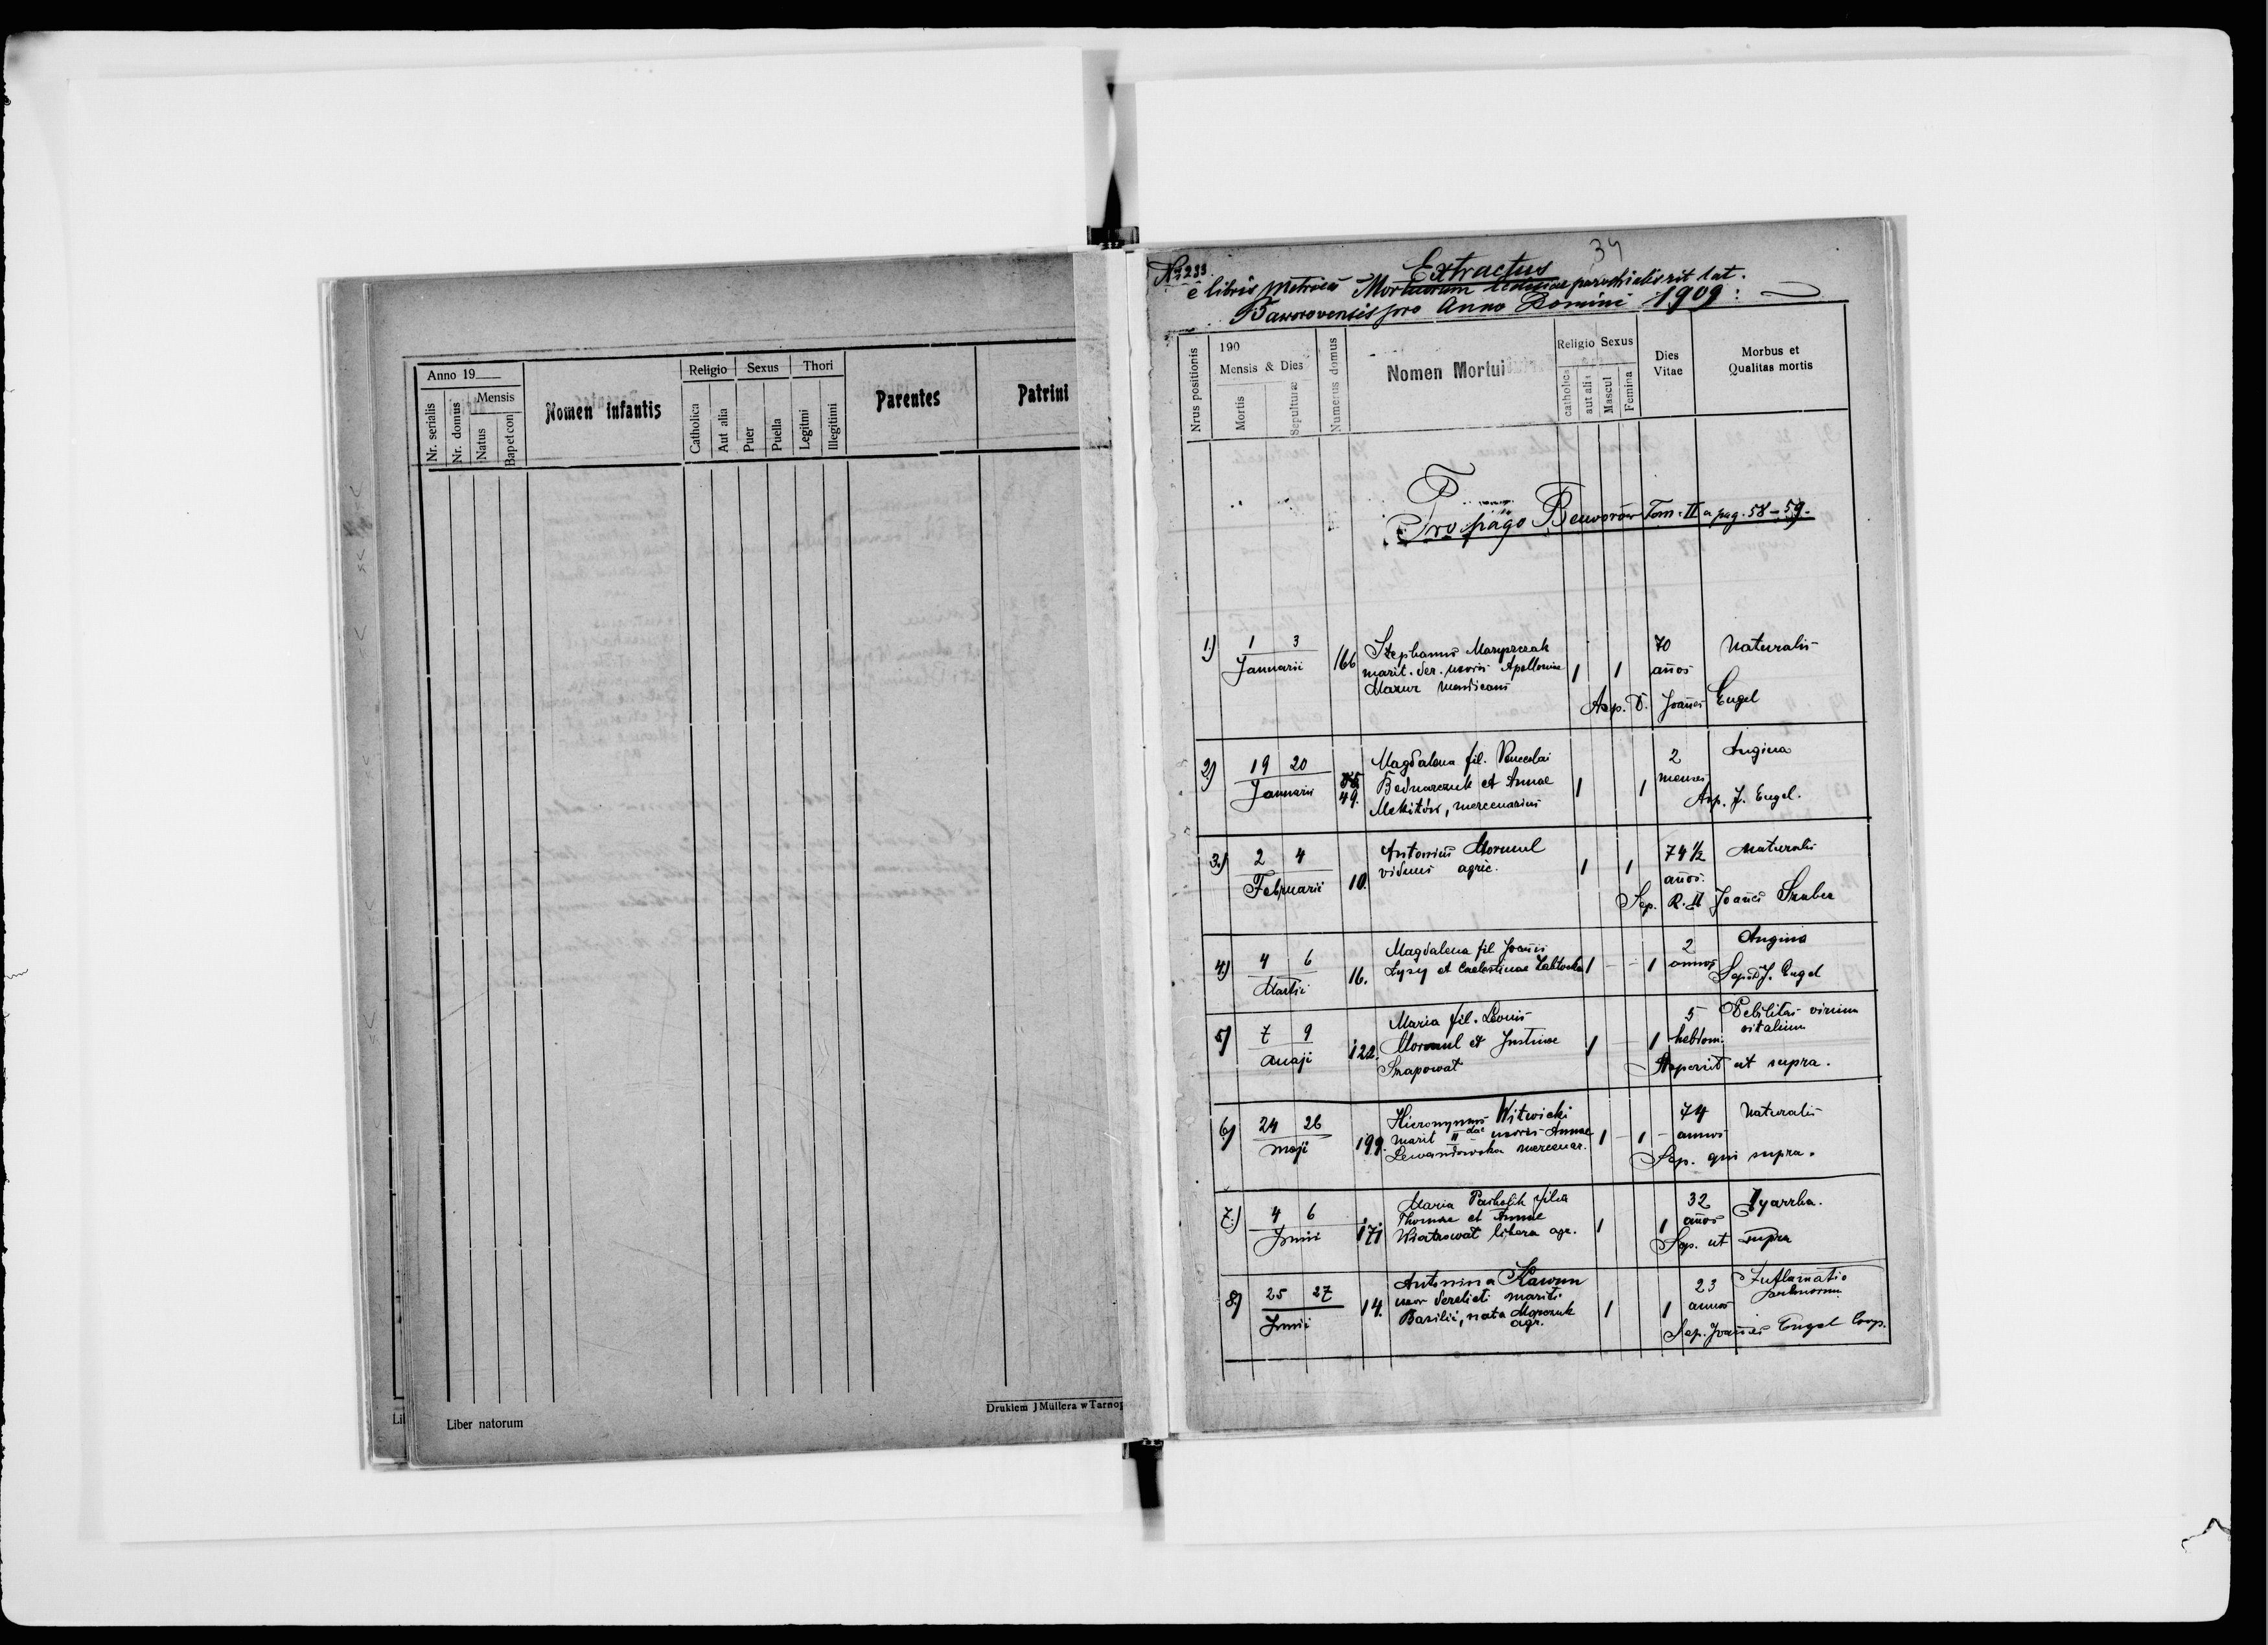 Anno 19
Mensis
Nr. serialis
Nr. domus
Natus
Bap et con
Nomen infantis
Religio
Sexus
Thori
Catholica
Aut alia
Puer
Puella
Legitmi
Illegitimi
Parentes
Patrini
Liber natorum
Drukiem J Müllera w Tarnop
34
№ 233.
Extractus
e libris Mortuorum parochialis rit lat.
Baworovensis pro Anno Domini 1909:
Nrus positionis
190
Mensis & Dies
Mortis
Sepulturæ
Numerus domus
Nomen Mortui
Religio
Sexus
catholica
aut alia
Mascul
Femina
Dies
Vitae
Morbus et
Qualitas mortis
Pro pago Baworów Tom. II a pag. 58-59.
1.) 1 3 Januarii 166 70 años Naturalis
marit. der. uxoris Apolloniae
Mazur mendicans
1 1
Asp. D. Joañes Engel
2.) 19 20 Januarii 49. Magdalena fil. Venceslai
Bednarczuk et Annae
mercenarius
1 1 2 menses Angina
Asp. J. Engel.
3.) 2 4 Februarii 10. Antonius Mormul
viduus agric.
1 1 74 1/2 años. Naturalis
Sep. Joañes
4.) 4 6 Martii 16. Magdalena fil Joañis
Lysy et Caelestinae
1 1 2 annos Angina
Sep. J. Engel
5.) 7 9 Maji 122. Maria fil. Leonis
Mormul et Justinae
Szapowat
1 1 5 hebdom. Debilitas virium
vitalium
Aspersit ut supra.
6.) 24 26 Maji 199. Hieronymus Witwicki
marit II dae uxoris Annae
Lewandowska mercenar.
1 1 74 annos Naturalis
Sep. qui supra.
7.) 4 6 Junii 171 Maria filia
Thomae et Annae
libera agr.
1 1 32 años Dyarrha.
Sep. ut supra
8.) 25 27 Junii 14. Antonina Kawun
uxor derelicti mariti
Basilii, nata
agr.
1 1 23 annos Inflamatio
pulmorum
Sep. Joañes Engel Coop.